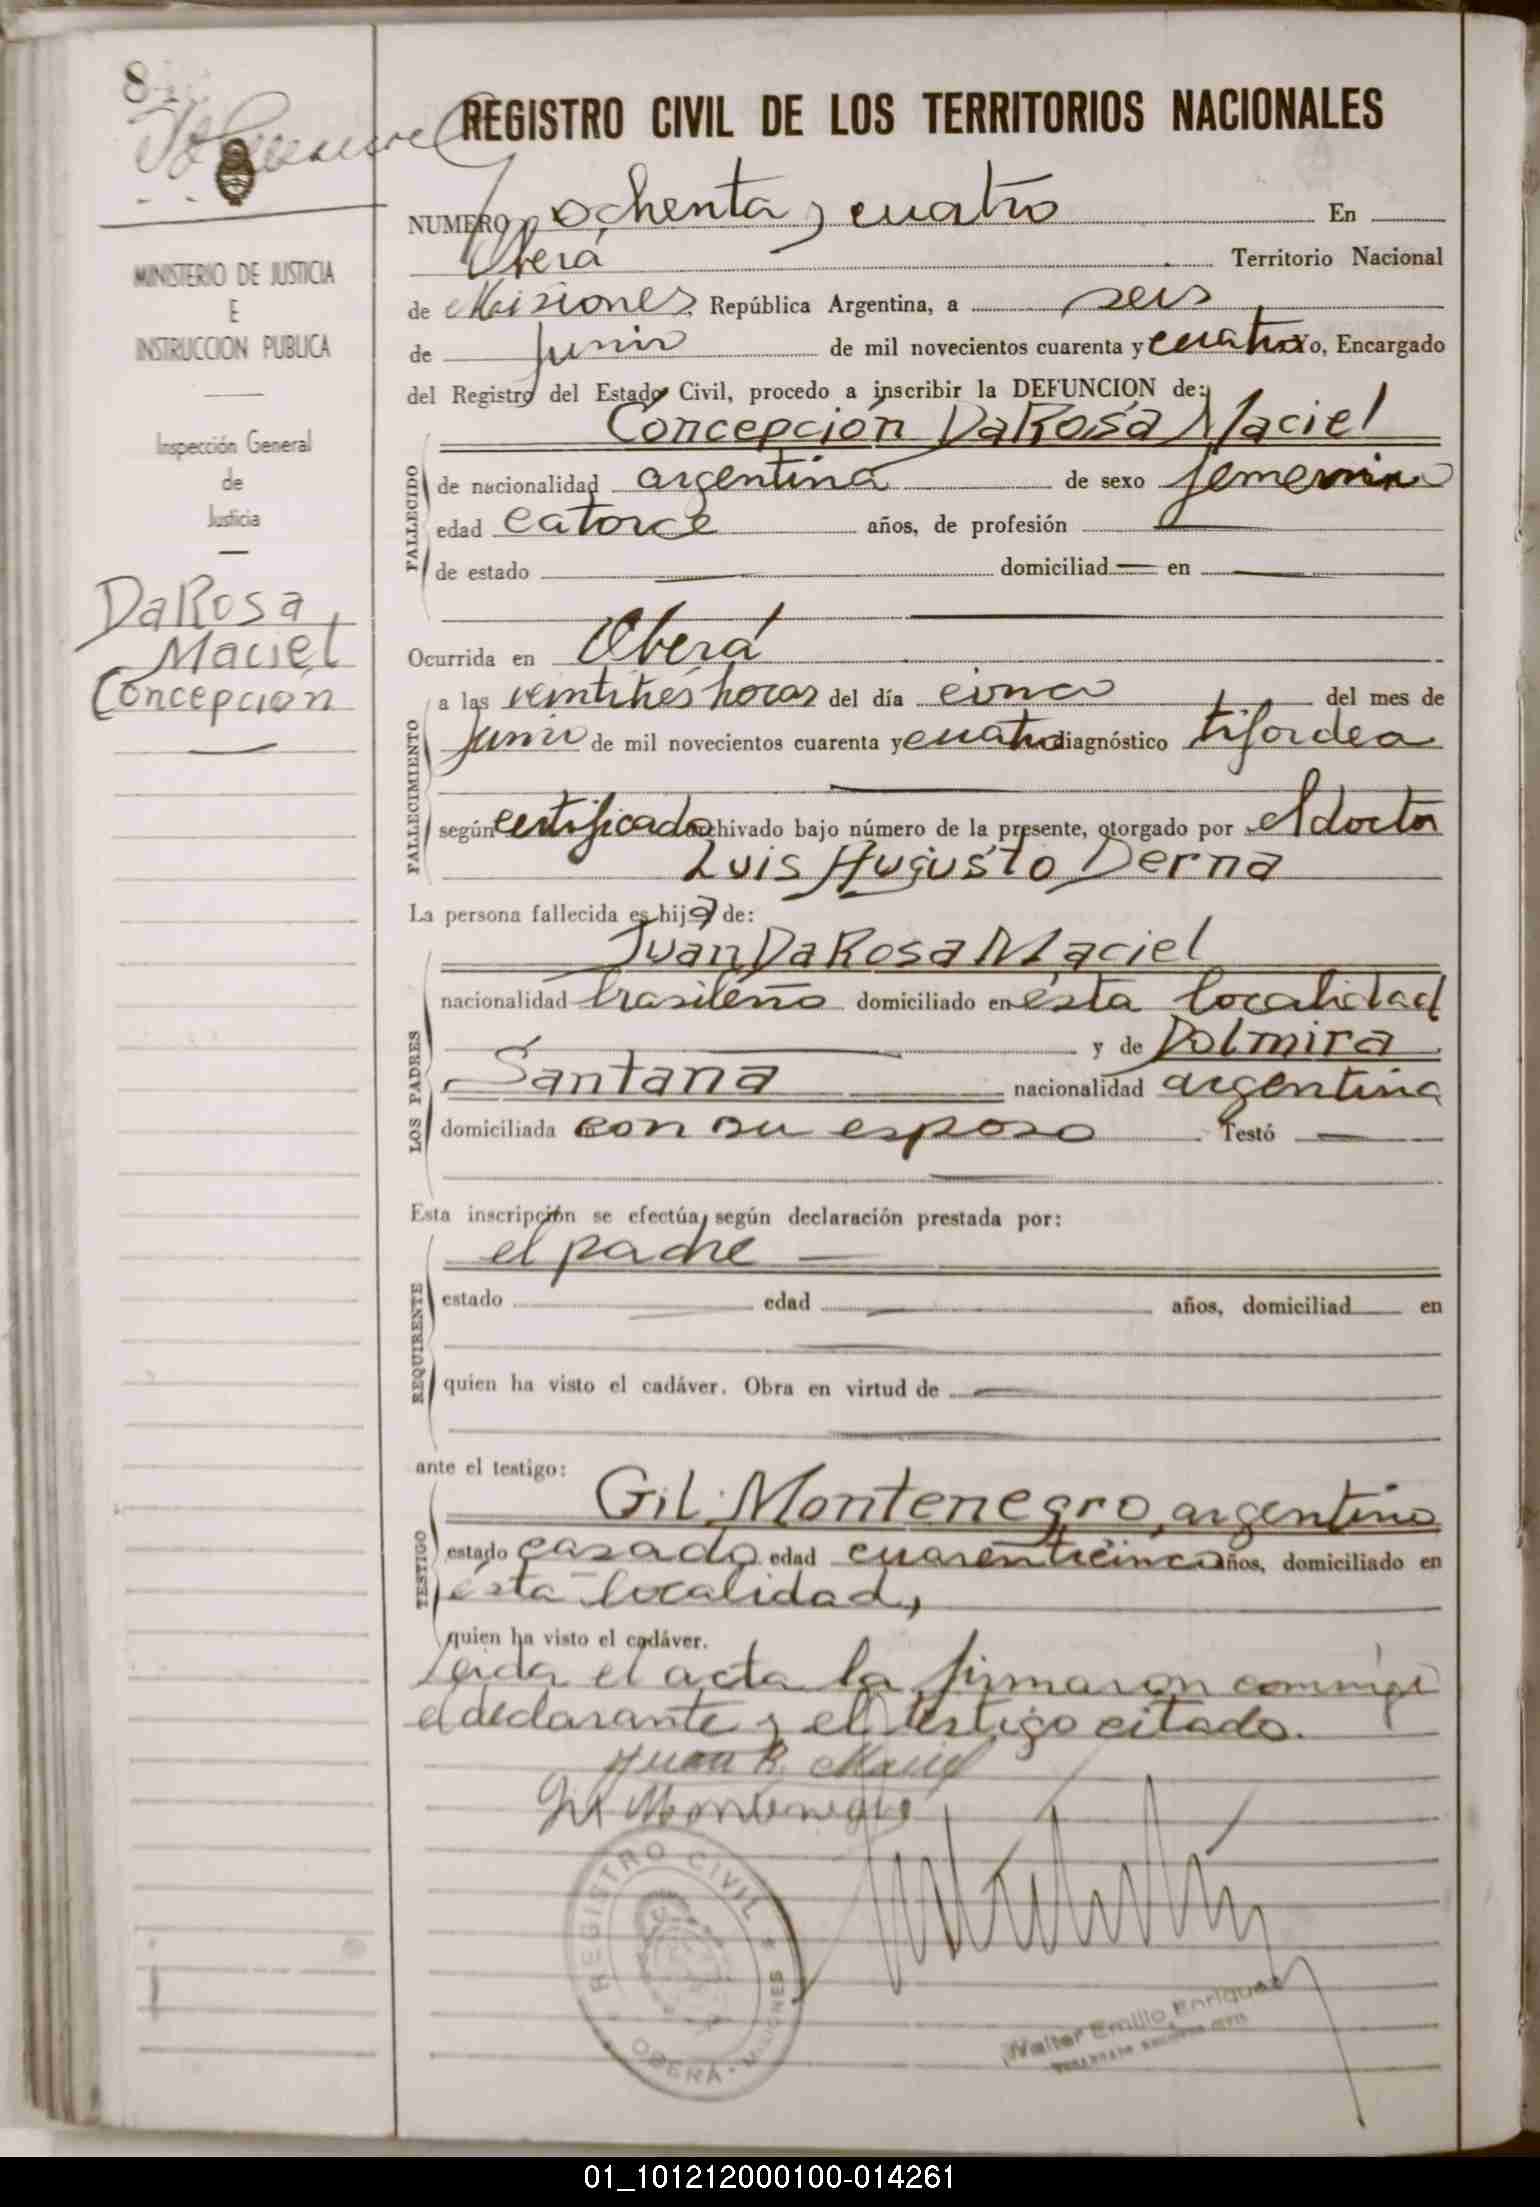 8
REGISTRO CIVIL DE LOS TERRITORIOS NACIONALES
NUMERO ochenta y cuatro En
Oberá Territorio Nacional
de Misiones, República Argentina, a seis
de Junio de mil novecientos cuarenta y cuatro Yo, Encargado
del Registro del Estado Civil, procedo a inscribir la DEFUNCION de:
Concepción DaRosa Maciel
MINISTERIO DE JUSTICIA
E
INSTRUCCION PUBLICA
Inspección General
de
Justicia
DaRosa
Maciel
Concepción
FALLECIDO
de nacionalidad argentina de sexo femenino
edad catorce años, de profesión
de estado domiciliad en
Ocurrida en Oberá
FALLECIMIENTO
a las veintitrés horas del día cinco del mes de
Junio de mil novecientos cuarenta y cuatro diagnóstico tifordea
según certificado archivado bajo número de la presente, otorgado por el doctor
Luis Augusto Derna
La persona fallecida es hija de:
LOS PADRES
Juan DaRosa Maciel
nacionalidad brasileño domiciliado en ésta localidad
y de Dolmira
Santana nacionalidad argentina
domiciliada con su esposo Testó
Esta inscripción se efectúa, según declaración prestada por:
REQUIRENTE
el padre
estado edad años, domiciliad en
quien ha visto el cadáver. Obra en virtud de
ante el testigo:
TESTIGO
Gil Montenegro, argentino
estado casado edad cuarenticinco años, domiciliado en
ésta localidad,
quien ha visto el cadáver.
Leida el acta la firmaron conmigo
el declarante y el testigo citado.
Juan R. Maciel
Gil Montenegro
REGISTRO CIVIL
OBERA - MISIONES
Walter Emilio Enriquez
ENCARGADO REGISTRO CIVIL
01_101212000100-014261